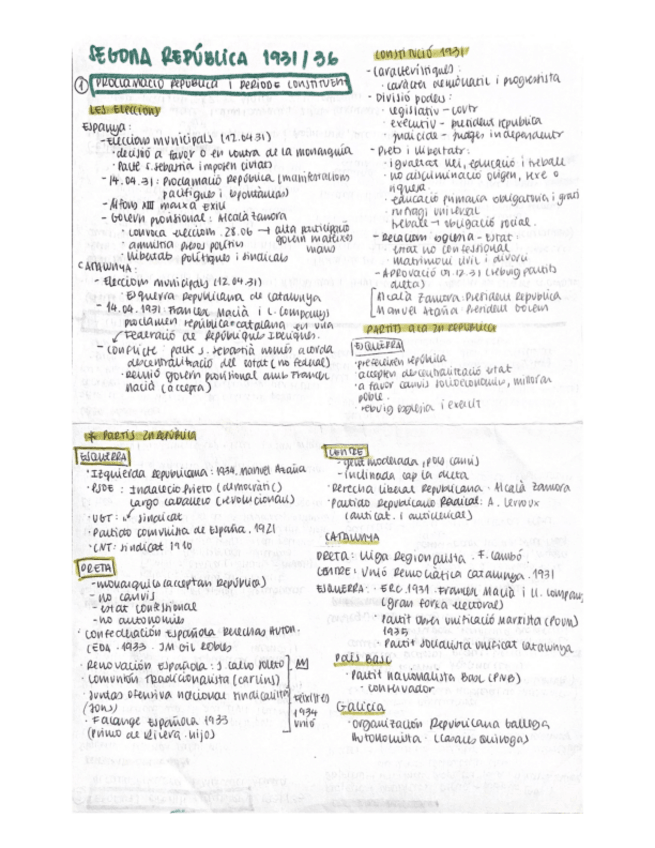 SEGONA REPÚBLICA 1931/36
① PROCLAMACIÓ REPÚBLICA I PERÍODE CONSTITUENT
LES ELECCIONS
Espanya:
- Eleccions municipals (12.04.31)
· decisió a favor o en contra de la monarquia
· Pacte S. Sebastià imposen civtas
- 14.04.31: Proclamació República (manifestacions
pacifiques i espontànies)
- Alfons XIII marxa exili
- Govern provisional: Alcalá Zamora
· convoca eleccions 28.06 → alta participació
govern mateixes
mans
· amnistia presos polítics
· llibertats polítiques i sindicals
CATALUNYA:
- Eleccions municipals (12.04.31)
· Esquerra Republicana de Catalunya
- 14.04.1931 Francesc Macià i L. Companys
proclamen república catalana en una
Federació de Repúbliques Ibèriques.
- Conflicte: pacte S. Sebastià només acorda
descentralització del estat (no federal)
· Reunió govern provisional amb Francesc
Macià (accepta)
CONSTITUCIÓ 1931
- Característiques:
· caràcter democràtic i progressista
- Divisió poders:
· legislatiu - corts
· executiu - president república
· judicial - jutges independents
- Drets i llibertats:
· igualtat llei, educació i treball
· no discriminació origen, sexe o
riquesa
· educació primaria obligatoria i grati
· sufragi universal
· treball → obligació social.
- Relacions església - estat:
· estat no confessional
· matrimoni civil i divorci
- APROVACIÓ 09.12.31 (rebuig partits
dreta)
Alcalá Zamora: President República
Manuel Azaña President Govern
PARTITS A LA 2N REPÚBLICA
ESQUERRA
· pretenien república
· accepten descentralització estat
· a favor canvis socioeconòmics, millorar
poble.
· rebuig església i exèrcit
* PARTITS 2N REPÚBLICA
ESQUERRA
· Izquierda Republicana: 1934. Manuel Azaña
· PSOE: Indalecio Prieto (democràtic)
Largo Caballero (revolucionari)
· UGT: sindicat
· Partido Comunista de España. 1921
· CNT: sindicat 1910
DRETA
- monarquics (acceptan República)
- no canvis
- estat confessional
- no autonomies
· Confederación Española Derechas Auton.
CEDA · 1933 · JM Gil Robles
· Renovación Española: J. Calvo Sotelo
· Comunión Tradicionalista (carlins)
· Juntas Ofensiva Nacional Sindicalista
(JONS)
· Falange Española 1933
(Primo de Rivera · hijo)
feixistes
1934
unió
CENTRE
- gent moderada, pocs canvis
- inclinada cap la dreta
· Derecha Liberal Republicana · Alcalá Zamora
· Partido Republicano Radical: A. Lerroux
(anticat. i anticlerical)
CATALUNYA
DRETA: Lliga Regionalista · F. Cambó.
CENTRE: Unió Democràtica Catalunya · 1931
ESQUERRA: · ERC 1931 · Francesc Macià i Ll. Companys
(gran força electoral)
· Partit Obrer Unificació Marxista (POUM)
1935
· Partit Socialista Unificat Catalunya
PAÍS BASC
· Partit Nacionalista Basc (PNB)
· conservador
Galícia
· Organización Republicana Gallega
Autonomista · (Casares Quiroga)